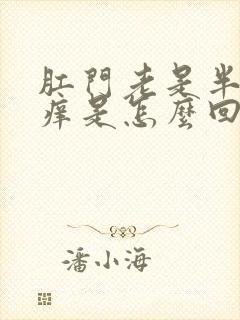 肛門老是半
痒是怎麼回
潘小海